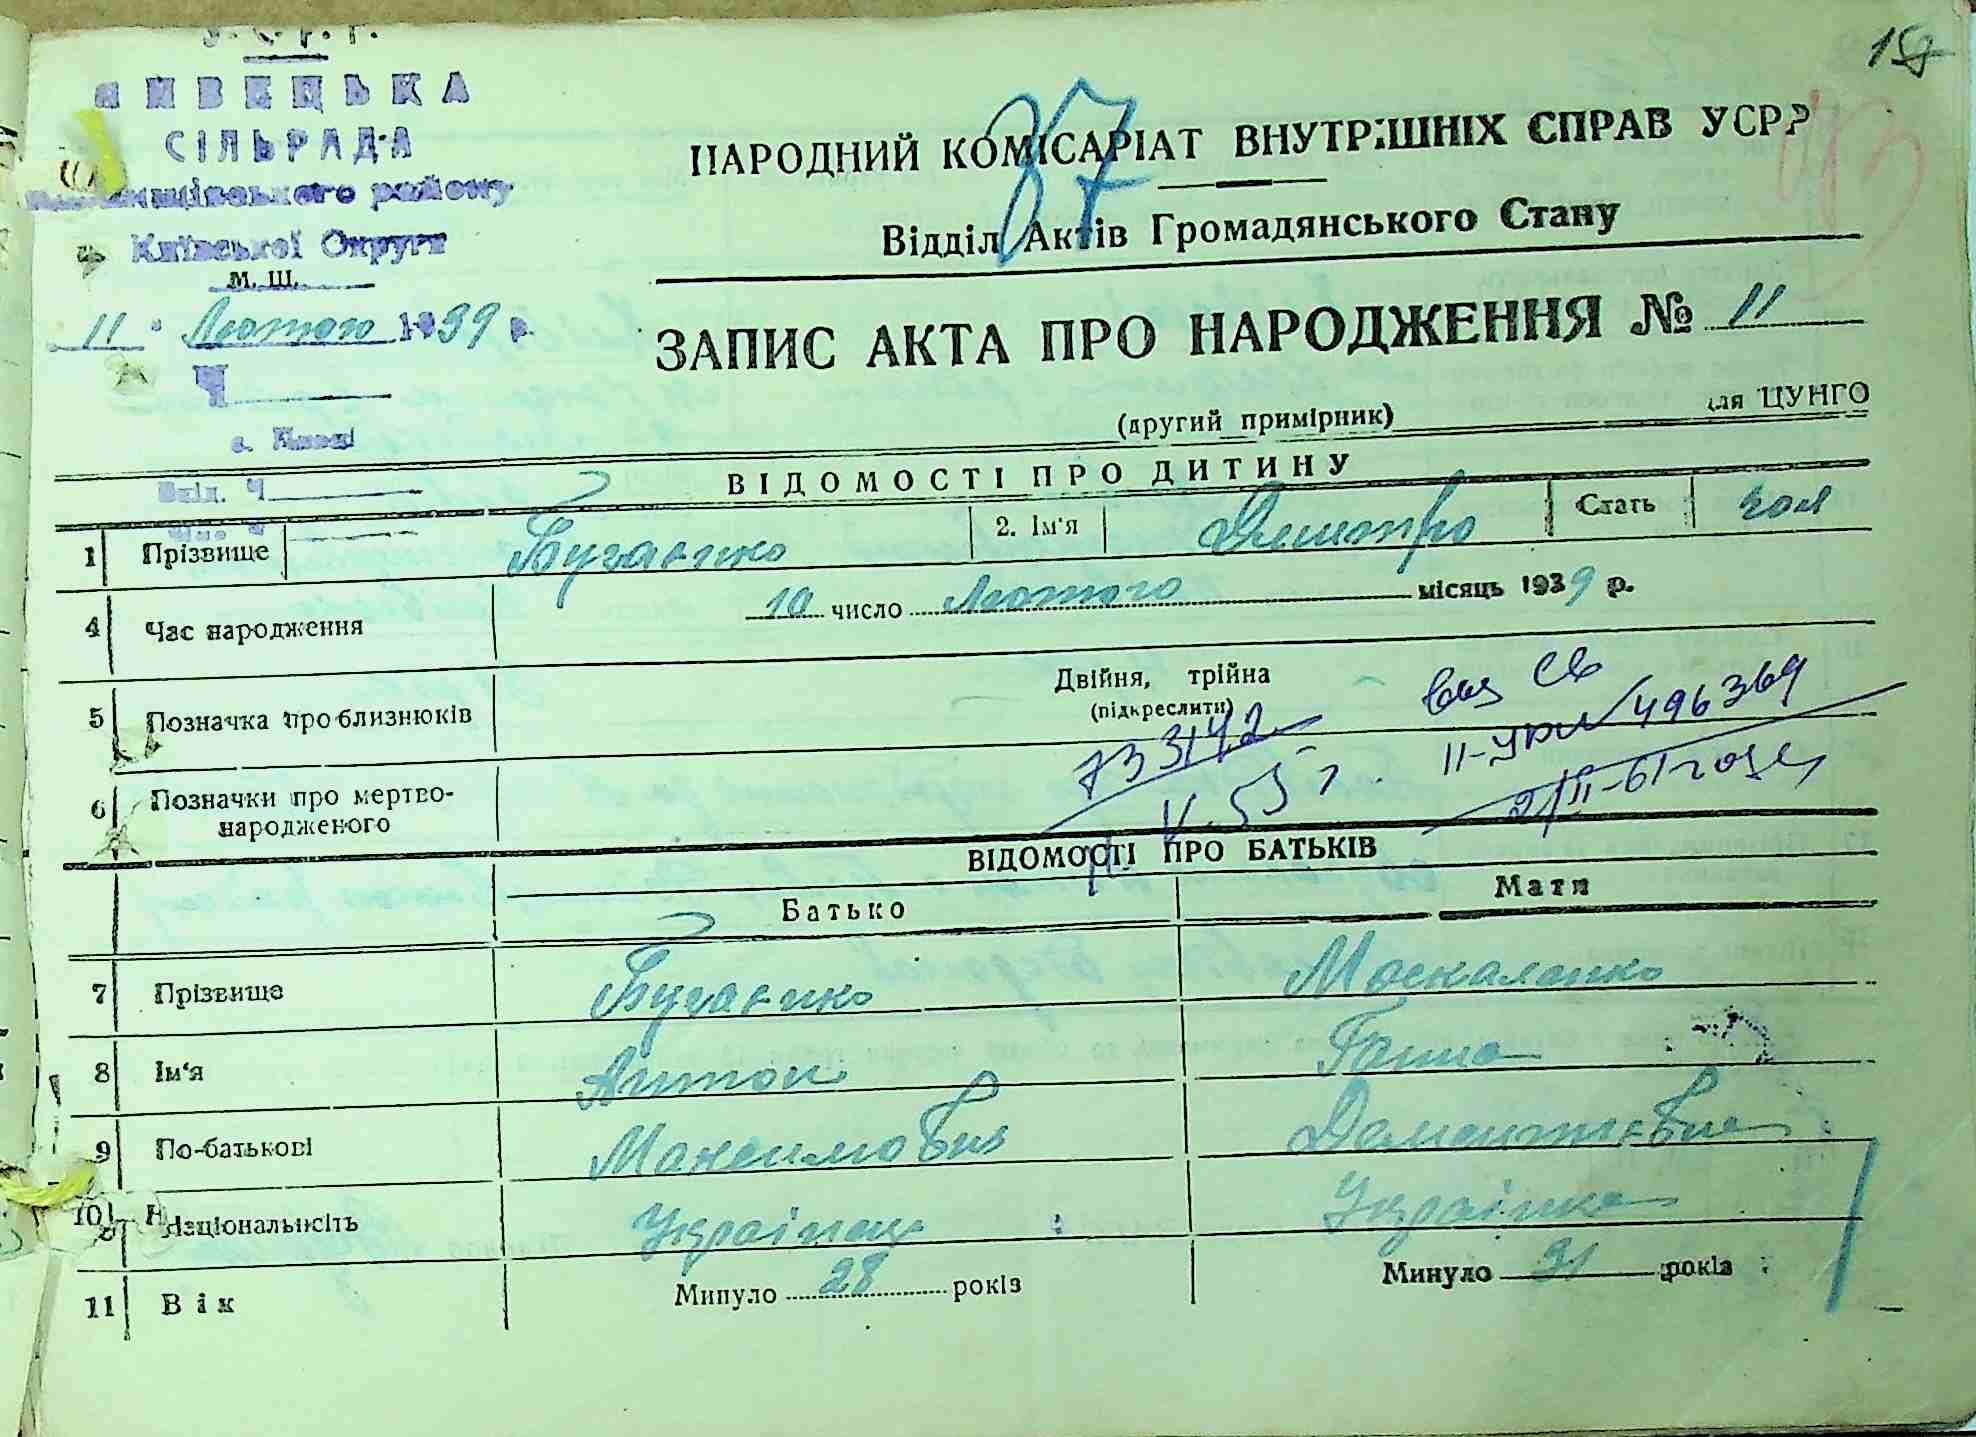 СІЛЬРАДА
району
Київської Округи
М. Ш.
11 " Лютого 1939 р.
Ч
НАРОДНИЙ КОМІСАРІАТ ВНУТРІШНІХ СПРАВ УСРР
87
Відділ Актів Громадянського Стану
ЗАПИС АКТА ПРО НАРОДЖЕННЯ № 11
(другий примірник)
для ЦУНГО
ВІДОМОСТІ ПРО ДИТИНУ
Вхід. Ч
1 Прізвище 2. Ім'я Дмитро Стать чол
4 Час народження 10 число Лютого місяць 1939 р.
5 Позначка про близнюків Двійня, трійна
(підкреслити)
733142
V-55 г.
II-УРЛ 496369
2/II-61 года
6 Позначки про мертво-
народженого
ВІДОМОСТІ ПРО БАТЬКІВ
Батько Мати
7 Прізвище Москаленко
8 Ім'я Антон Ганна
9 По-батькові Максимович
10 Національність Українец Українка
11 Вік Минуло 28 років Минуло 31 років